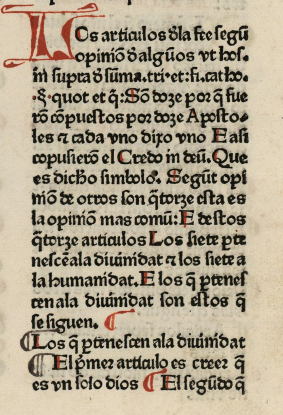 LOs articulos ðla fee segũ
opiniõ ðalgũos vt hos.
in supra ð sũma.tri.et:fi.catho.
.§.quot et q̃:Sõ doze por q̃ fue
rõ cõpuestos por doze Aposto-
les ⁊ cada vno dixo vno E asi
cõpusierõ el Credo in deũ. Que
es dicho simbolo. Segũt opi
niõ de otros son q̃torze esta es
la opiniõ mas comũ: E destos
q̃torze articulos Los siete ꝑte
nescẽ ala diuinidat ⁊ los siete a
la humanidat. E los q̃ ꝑtenes
cen ala diuinidat son estos q̃
se siguen. ¶
¶ Los q̃ ꝑtenescen ala diuinidat
¶ El p̃mer articulo es creer q̃
es vn solo dios ¶ El segũdo q̃